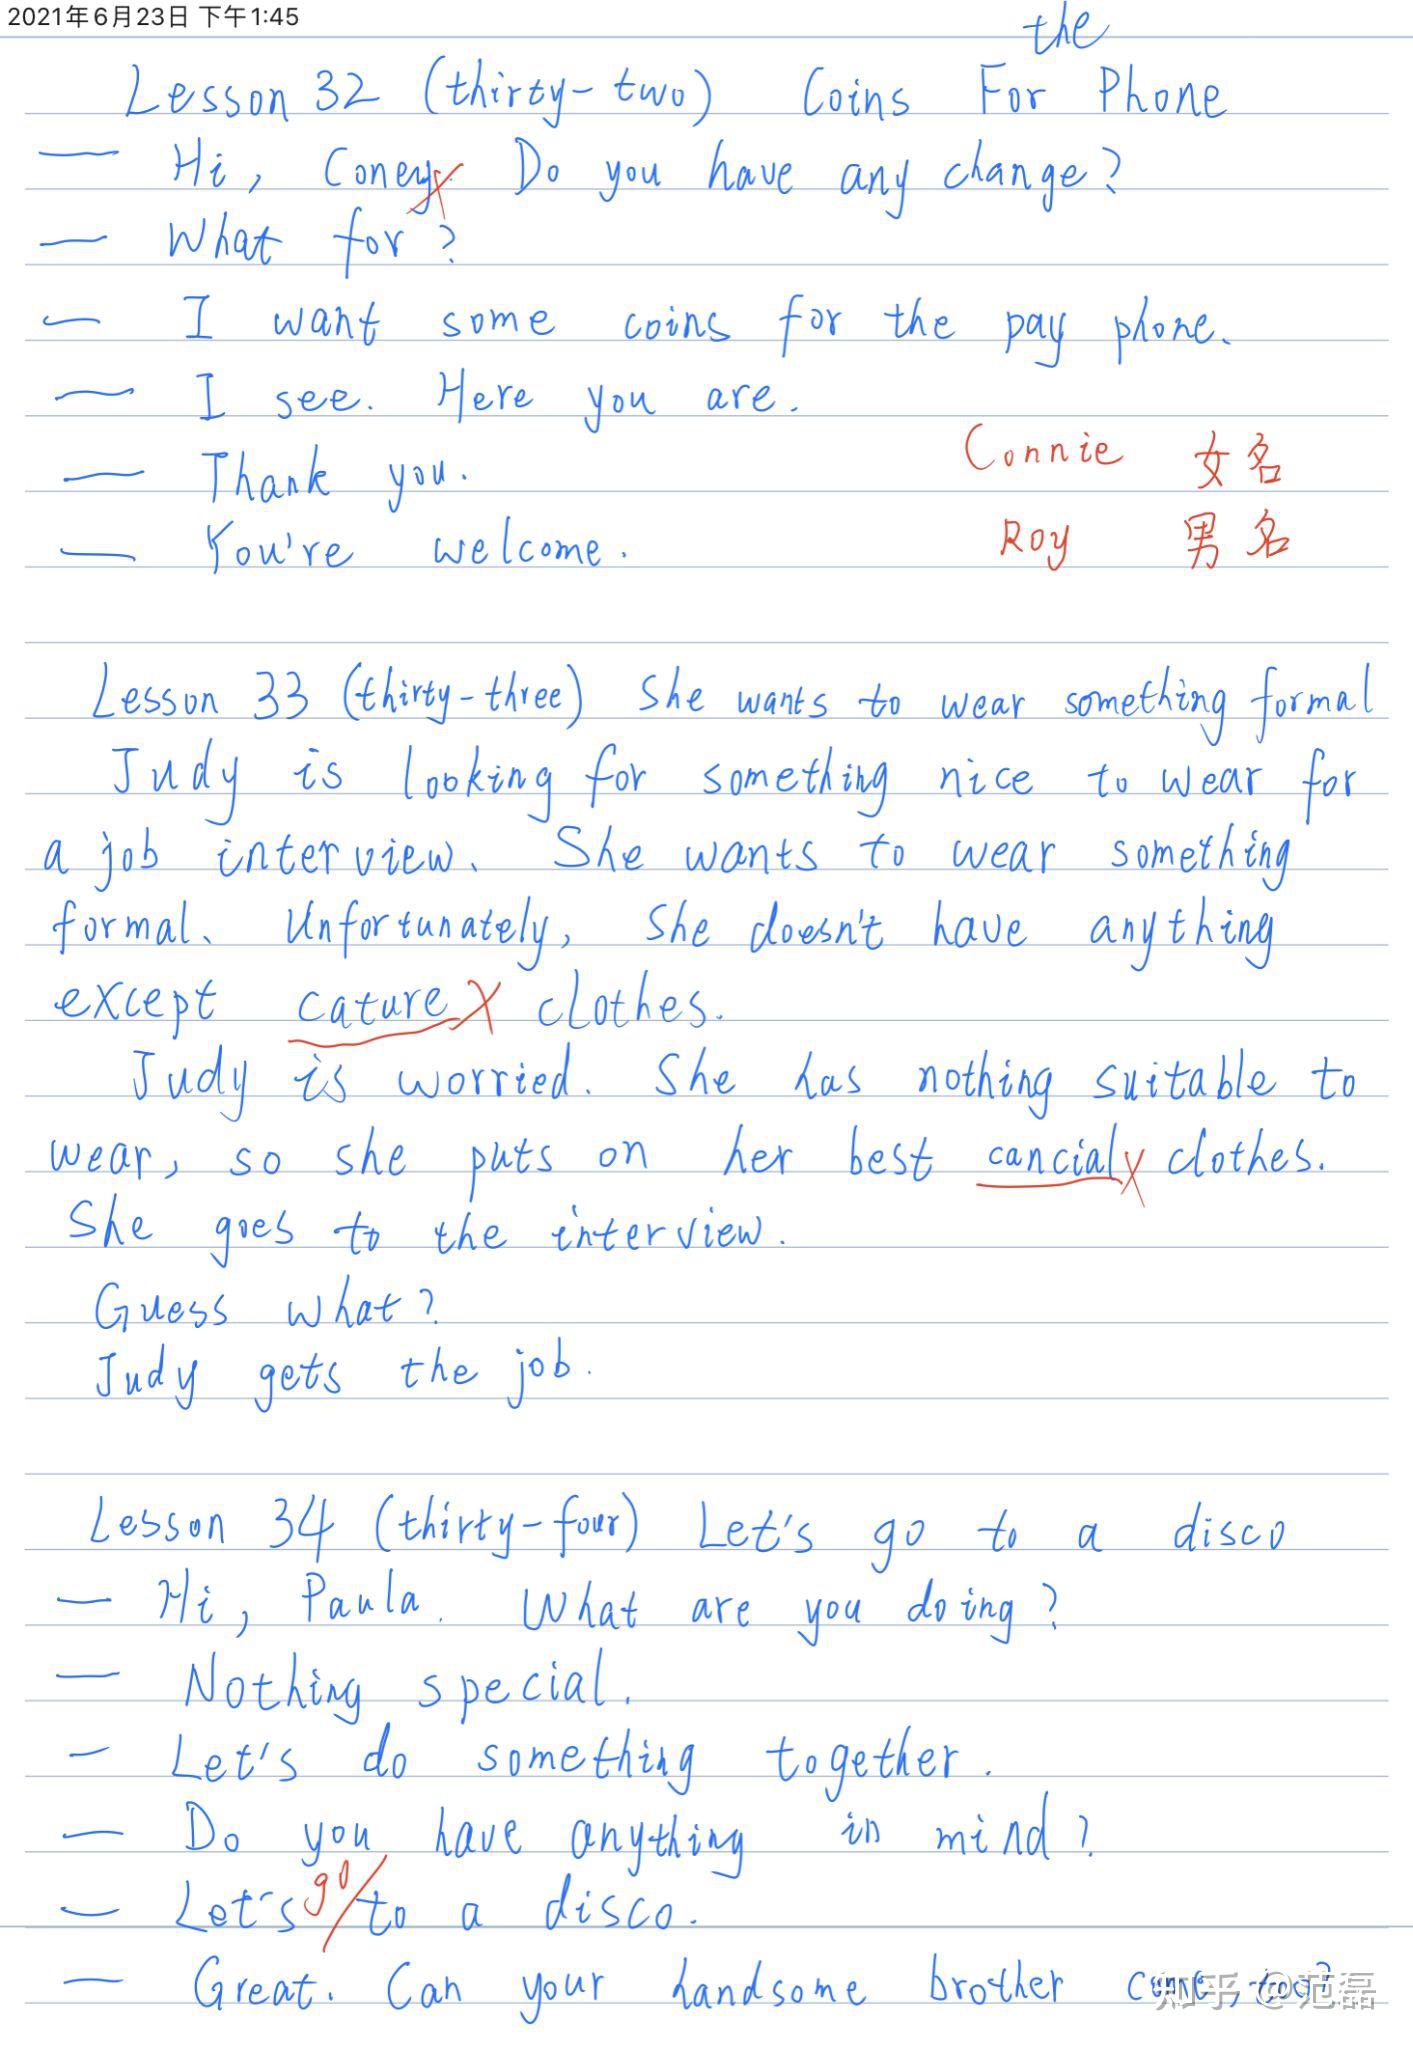 2021年6月23日 下午1:45
the
Lesson 32 (thirty-two) Coins For Phone
— Hi, Coney Do you have any change?
— What for?
— I want some coins for the pay phone.
— I see. Here you are.
Connie 女名
— Thank you.
Roy 男名
— You're welcome.
Lesson 33 (thirty-three) She wants to wear something formal
Judy is looking for something nice to wear for
a job interview. She wants to wear something
formal. Unfortunately, She doesn't have anything
except cature clothes.
Judy is worried. She has nothing suitable to
wear, so she puts on her best cancial clothes.
She goes to the interview.
Guess what?
Judy gets the job.
Lesson 34 (thirty-four) Let's go to a disco
— Hi, Paula. What are you doing?
— Nothing special.
— Let's do something together.
— Do you have anything in mind?
— Let's go to a disco.
— Great. Can your handsome brother come, too?
知乎 @范磊